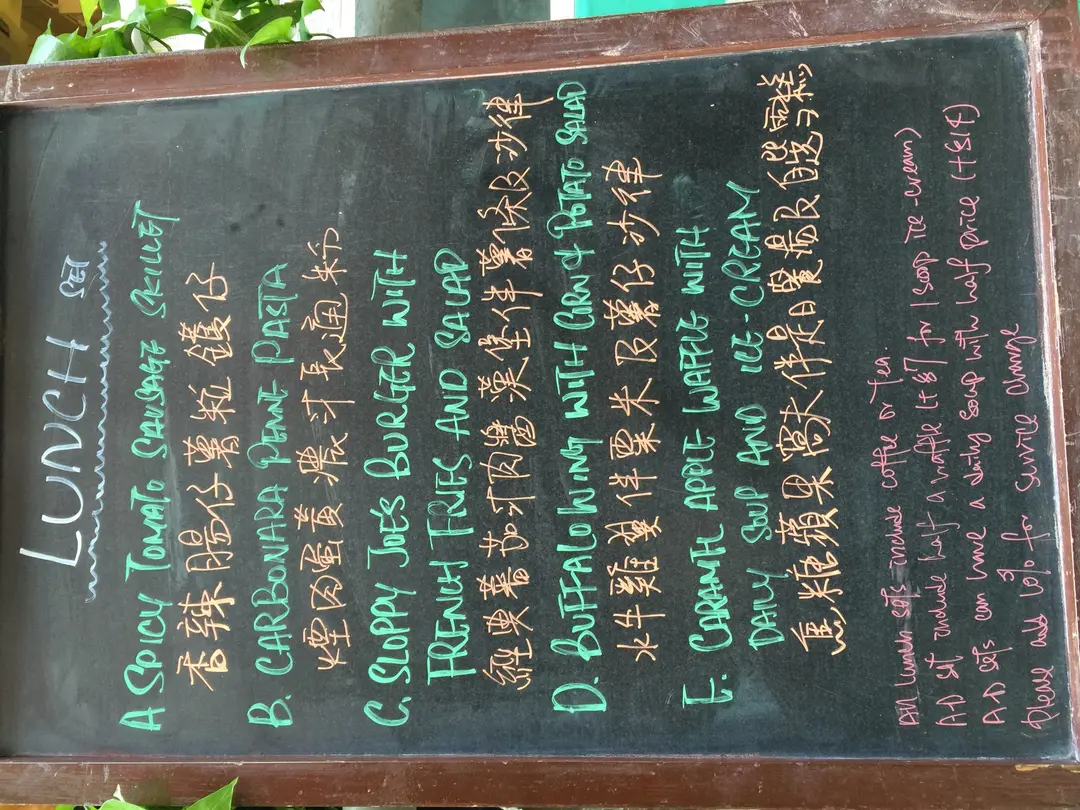 LUNCH SET
A SPICY TOMATO SAUSAGE SKILLET
香辣腸仔薯粒鑊仔
B. CARBONARA PENNE PASTA
煙肉蛋黃濃汁長通粉
C. SLOPPY JOE'S BURGER WITH
FRENCH FRIES AND SALAD
經典蕃茄汁肉醬漢堡伴薯條及沙律
D. BUFFALO WING WITH CORN & POTATO SALAD
水牛雞翼伴粟米及薯仔沙律
E. CARAMEL APPLE WAFFLE WITH
DAILY SOUP AND ICE-CREAM
焦糖蘋果窩夫伴是日餐湯及自選雪糕
All lunch sets include coffee or Tea.
A-D set include half a waffle (+$7 for 1 scoop ice-cream)
A-D sets can have a daily soup with half price (+$14)
Please add 10% for service charge